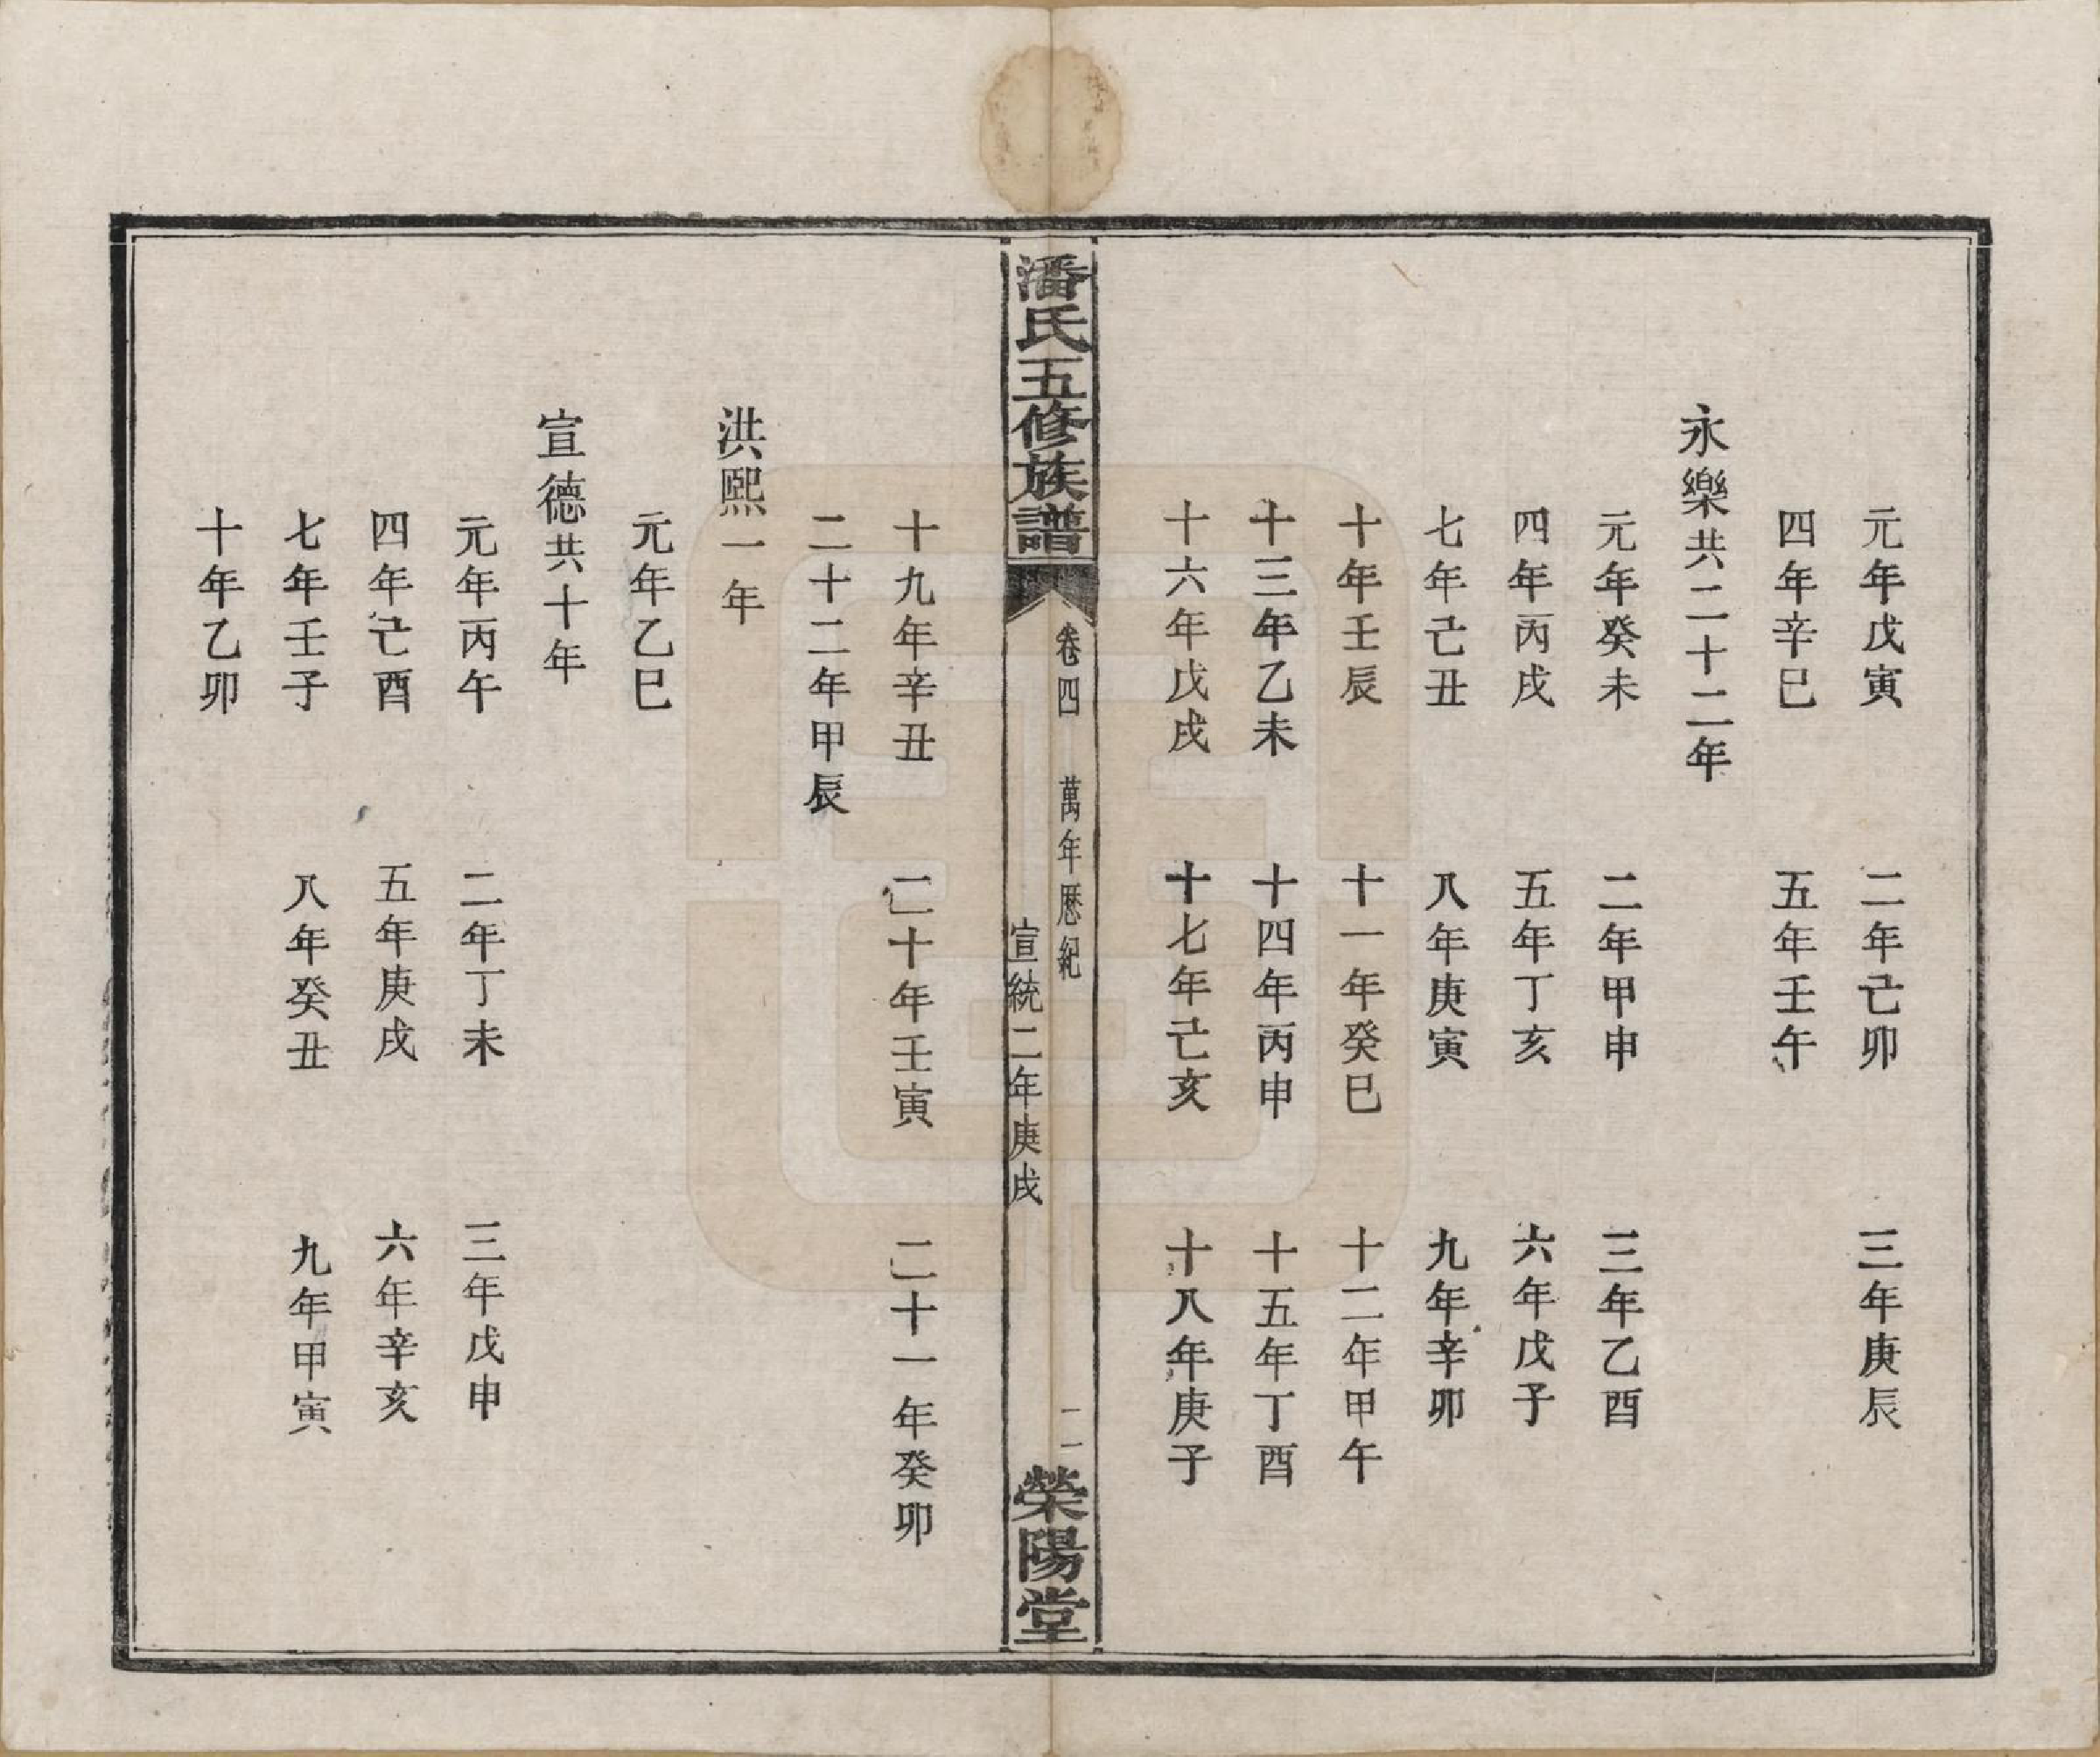 元年戊寅　二年己卯　三年庚辰
四年辛巳　五年壬午
永樂共二十二年
元年癸未　二年甲申　三年乙酉
四年丙戌　五年丁亥　六年戊子
七年己丑　八年庚寅　九年辛卯
十年壬辰　十一年癸巳　十二年甲午
十三年乙未　十四年丙申　十五年丁酉
十六年戊戌　十七年己亥　十八年庚子
潘氏五修族譜
卷四　萬年歷紀　二
宣統二年庚戌
榮陽堂
十九年辛丑　二十年壬寅　二十一年癸卯
二十二年甲辰
洪熙一年
元年乙巳
宣德共十年
元年丙午　二年丁未　三年戊申
四年己酉　五年庚戌　六年辛亥
七年壬子　八年癸丑　九年甲寅
十年乙卯